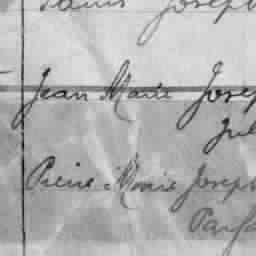 Louis Joseph
Jean Marie Josep
Jul
Pierre Marie Joseph
Parfa